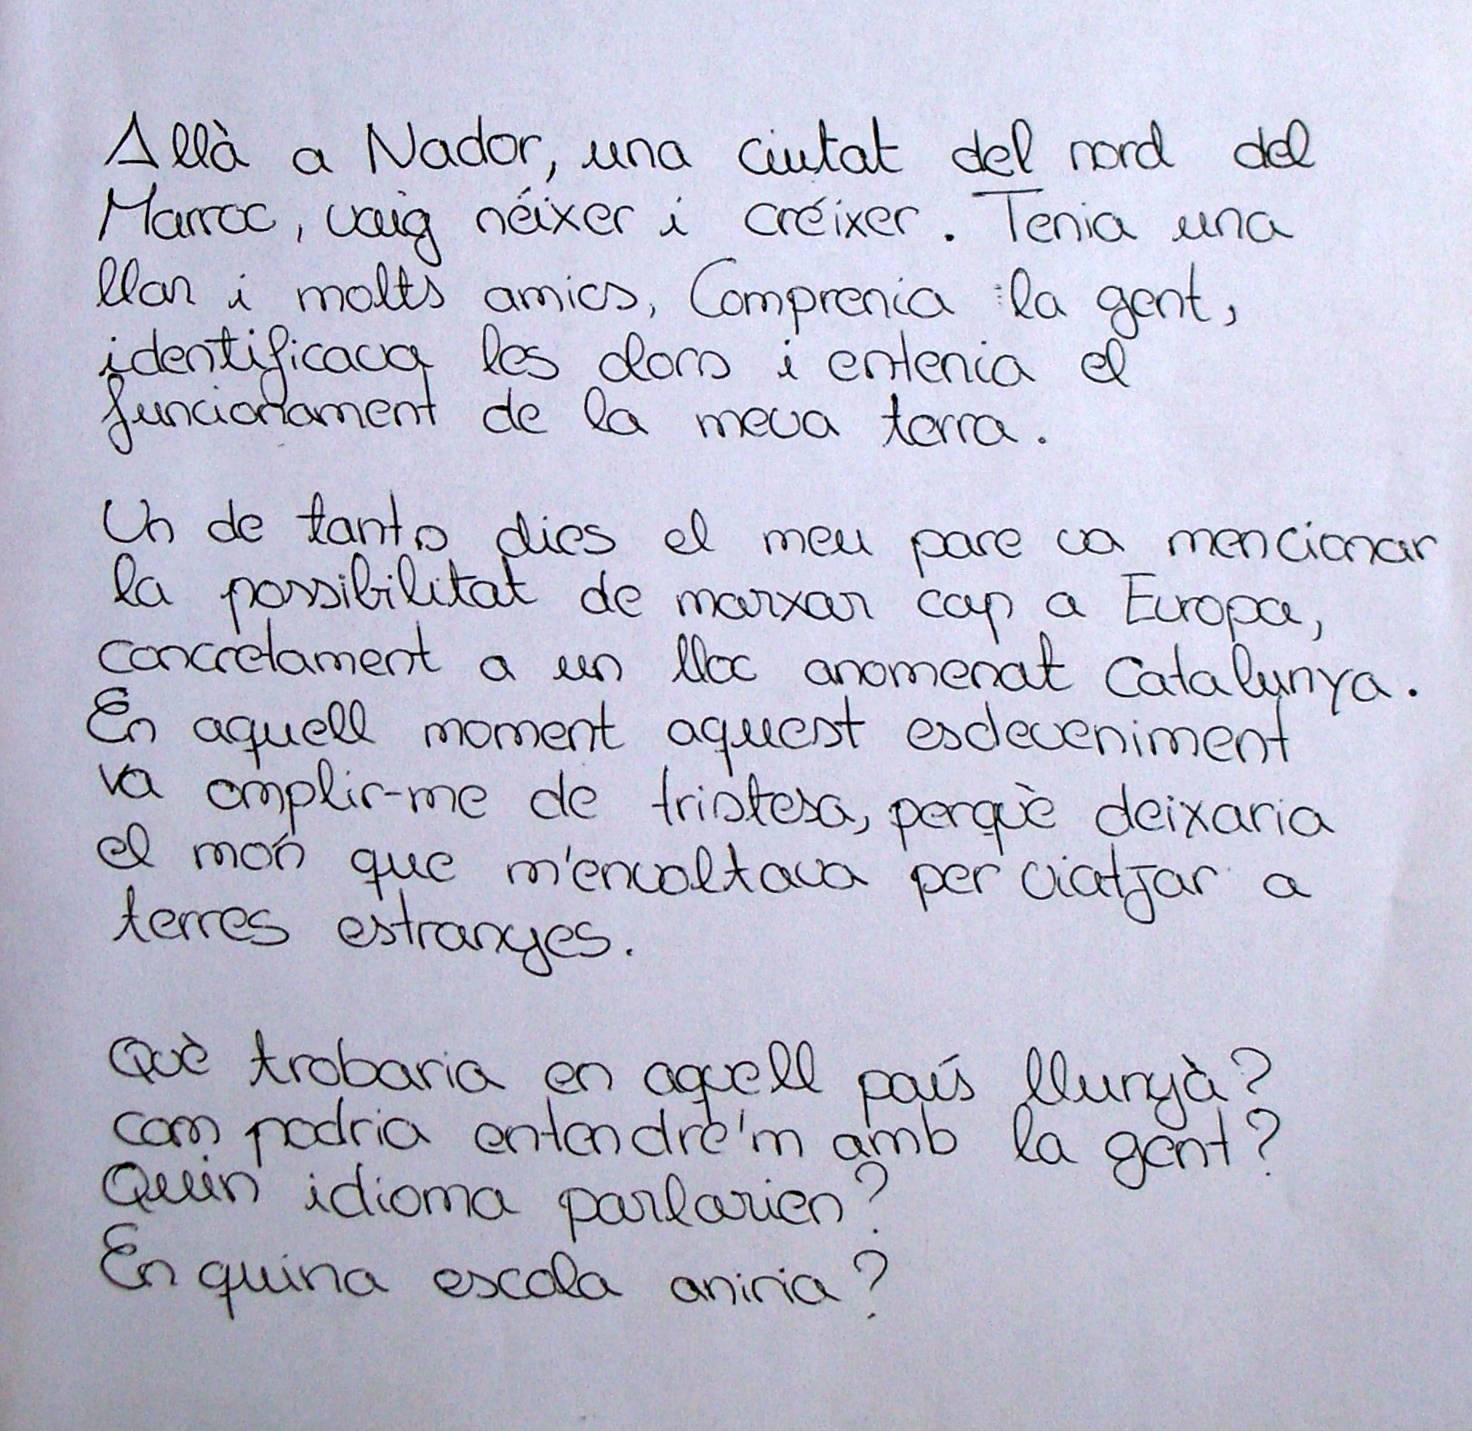 Allà a Nador, una ciutat del nord del
Marroc, vaig néixer i créixer. Tenia una
llar i molts amics, Comprenia la gent,
identificava les olors i entenia el
funcionament de la meva terra.
Un de tants dies el meu pare va mencionar
la possibilitat de marxar cap a Europa,
concretament a un lloc anomenat Catalunya.
En aquell moment aquest esdeveniment
va omplir-me de tristesa, perquè deixaria
el món que m'envoltava per viatjar a
terres estranyes.
Què trobaria en aquell país llunyà?
com podria entendre'm amb la gent?
Quin idioma parlarien?
En quina escola aniria?